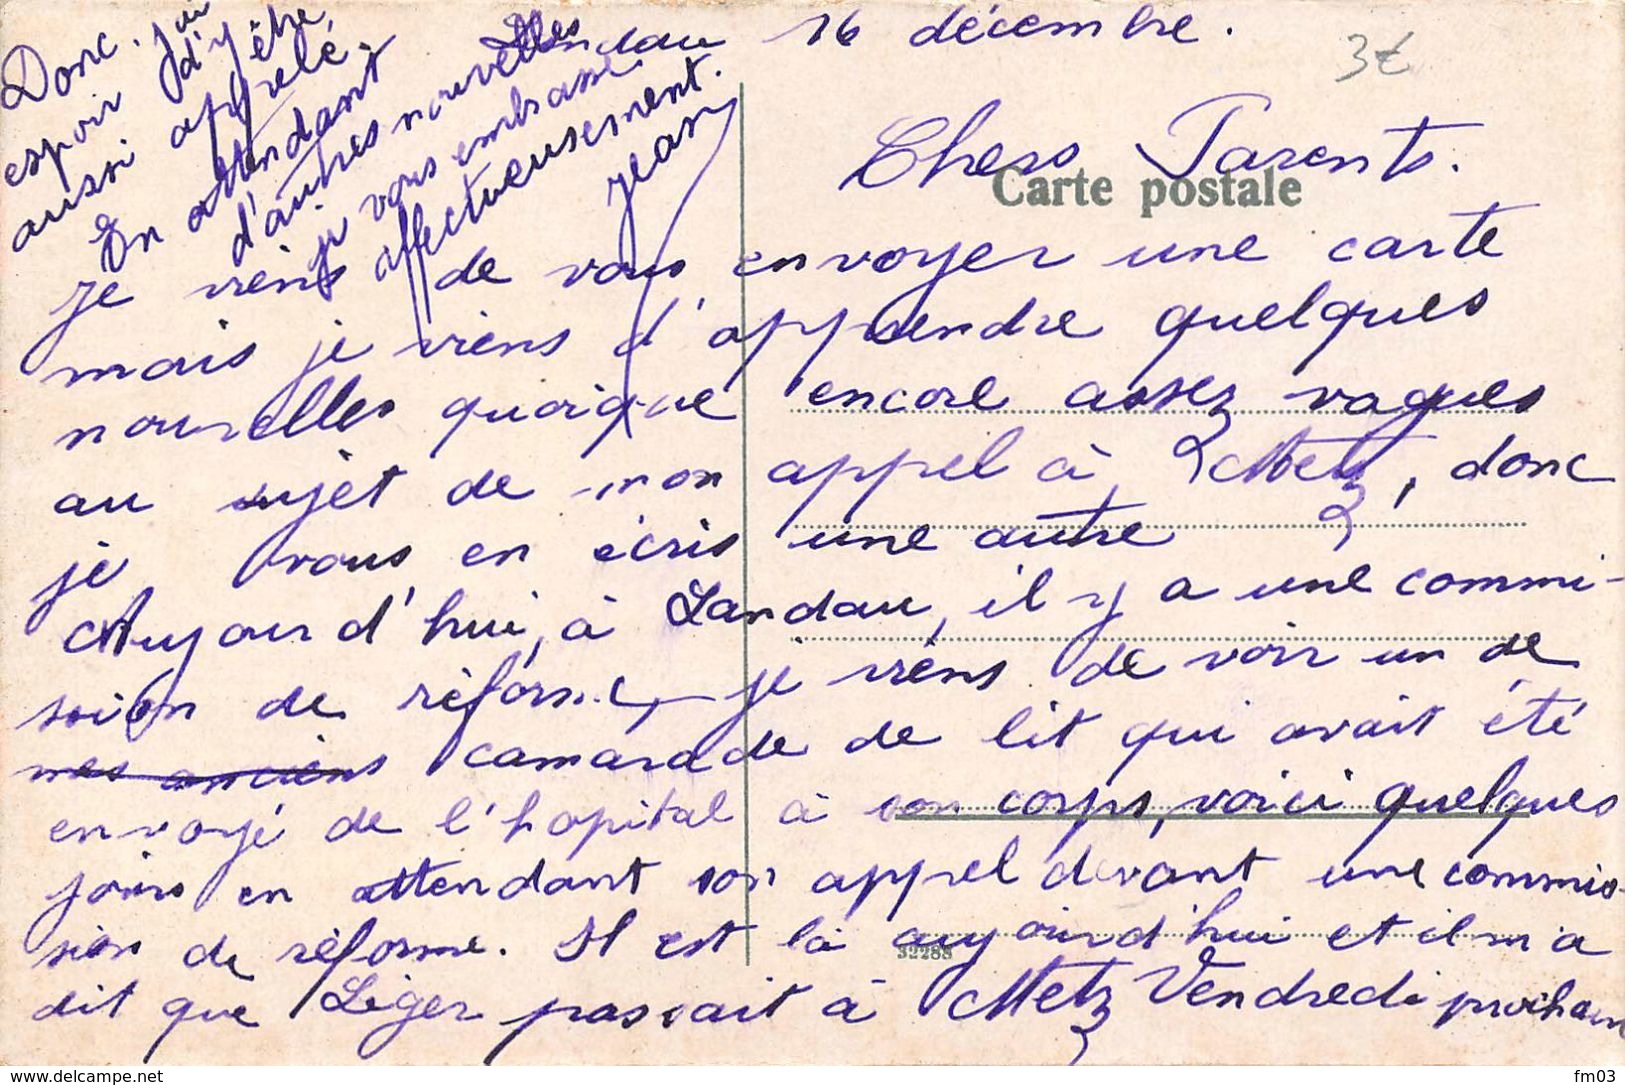 Landau 16 décembre.
3€
Chers Parents.
Carte postale
je viens de vous envoyer une carte
mais je viens d'apprendre quelques
nouvelles quoique encore assez vagues
au sujet de mon appel à Metz, donc
je vous en écris une autre
Aujourd'hui, à Landau, il y a une commi-
ssion de réforme, je viens de voir un de
mes anciens camarade de lit qui avait été
envoyé de l'hopital à son corps, voici quelques
jours en attendant son appel devant une commis-
sion de réforme. Il est là aujourd'hui et il m'a
32288
dit que Léger passait à Metz Vendredi prochain
Donc j'ai
espoir d'y être
aussi appelé.
En attendant
d'autres nouvelles
je vous embrasse
affectueusement.
Jean
www.delcampe.net
fm03